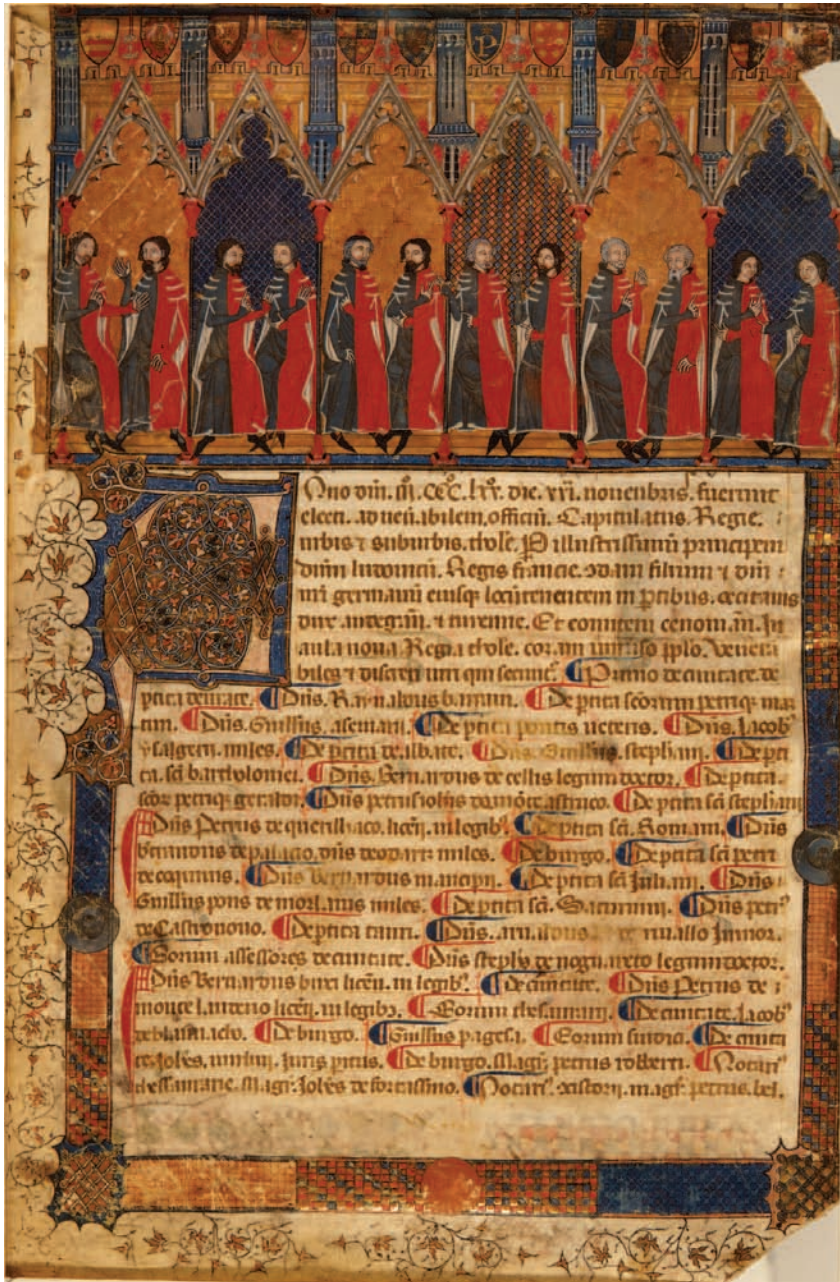 nno dni. m. ccc. lxx. die. xvi. nouenbris. fuerunt
electi. ad uenabilem. officiu. Capitulatus. Regie.
urbis z suburbis. thole. P illustrissimum principem
dnm ludouicu. Regis francie. quondam filium z dni
nri germanu eiusq locutenentem in ptibus. occitanis
duce andegau. z turenne. Et comitem cenoman. In
aula noua Regia thole. coram uniuso pplo. Venera
biles z discreti uiri qui secunt. Primo de ciuitate. de
ptita deurate. Dns. R. de
ptita scorum petri q mar
tini. Dns. Guillus. De ptita pontis ueteris. Dns. Jacob
miles. De ptita de albate. Dns. Guillus. stephani. De pti
ta. sci bartholomei. Dns. Bernardus de legum doctor. De ptita.
scor petri q geraldi. Dns petrus iohis De ptita sci stephani
Dns Petrus de licen. in legib. De ptita sci. Romani. Dns
bertrandus de palacio. dns miles. De burgo. De ptita sci petri
de coquinis. Dns Bernardus mancipii. De ptita sci Juliani. Dns
Guillus pons de morlanis miles. De ptita sci. Saturnini. Dns petrus
de Castronouo. De ptita tauri. Dns. Junior.
Eorum assessores de ciuitate. Dns stephs de nogareto legum doctor.
Dns Bernardus licen. in legib. de ciuitate. Dns Petrus de
monte lauderio licen. in legibz. Eorum thesaurarii. De ciuitate. Jacob
de De burgo. Guillus pagesa. Eorum sindici. De ciuita
te. Johes. iuris pitus. De burgo. Magr petrus rotberti. Notari
thesaurarie. Magr. Johes de fortassino. Notari. magr. petrus. bel.